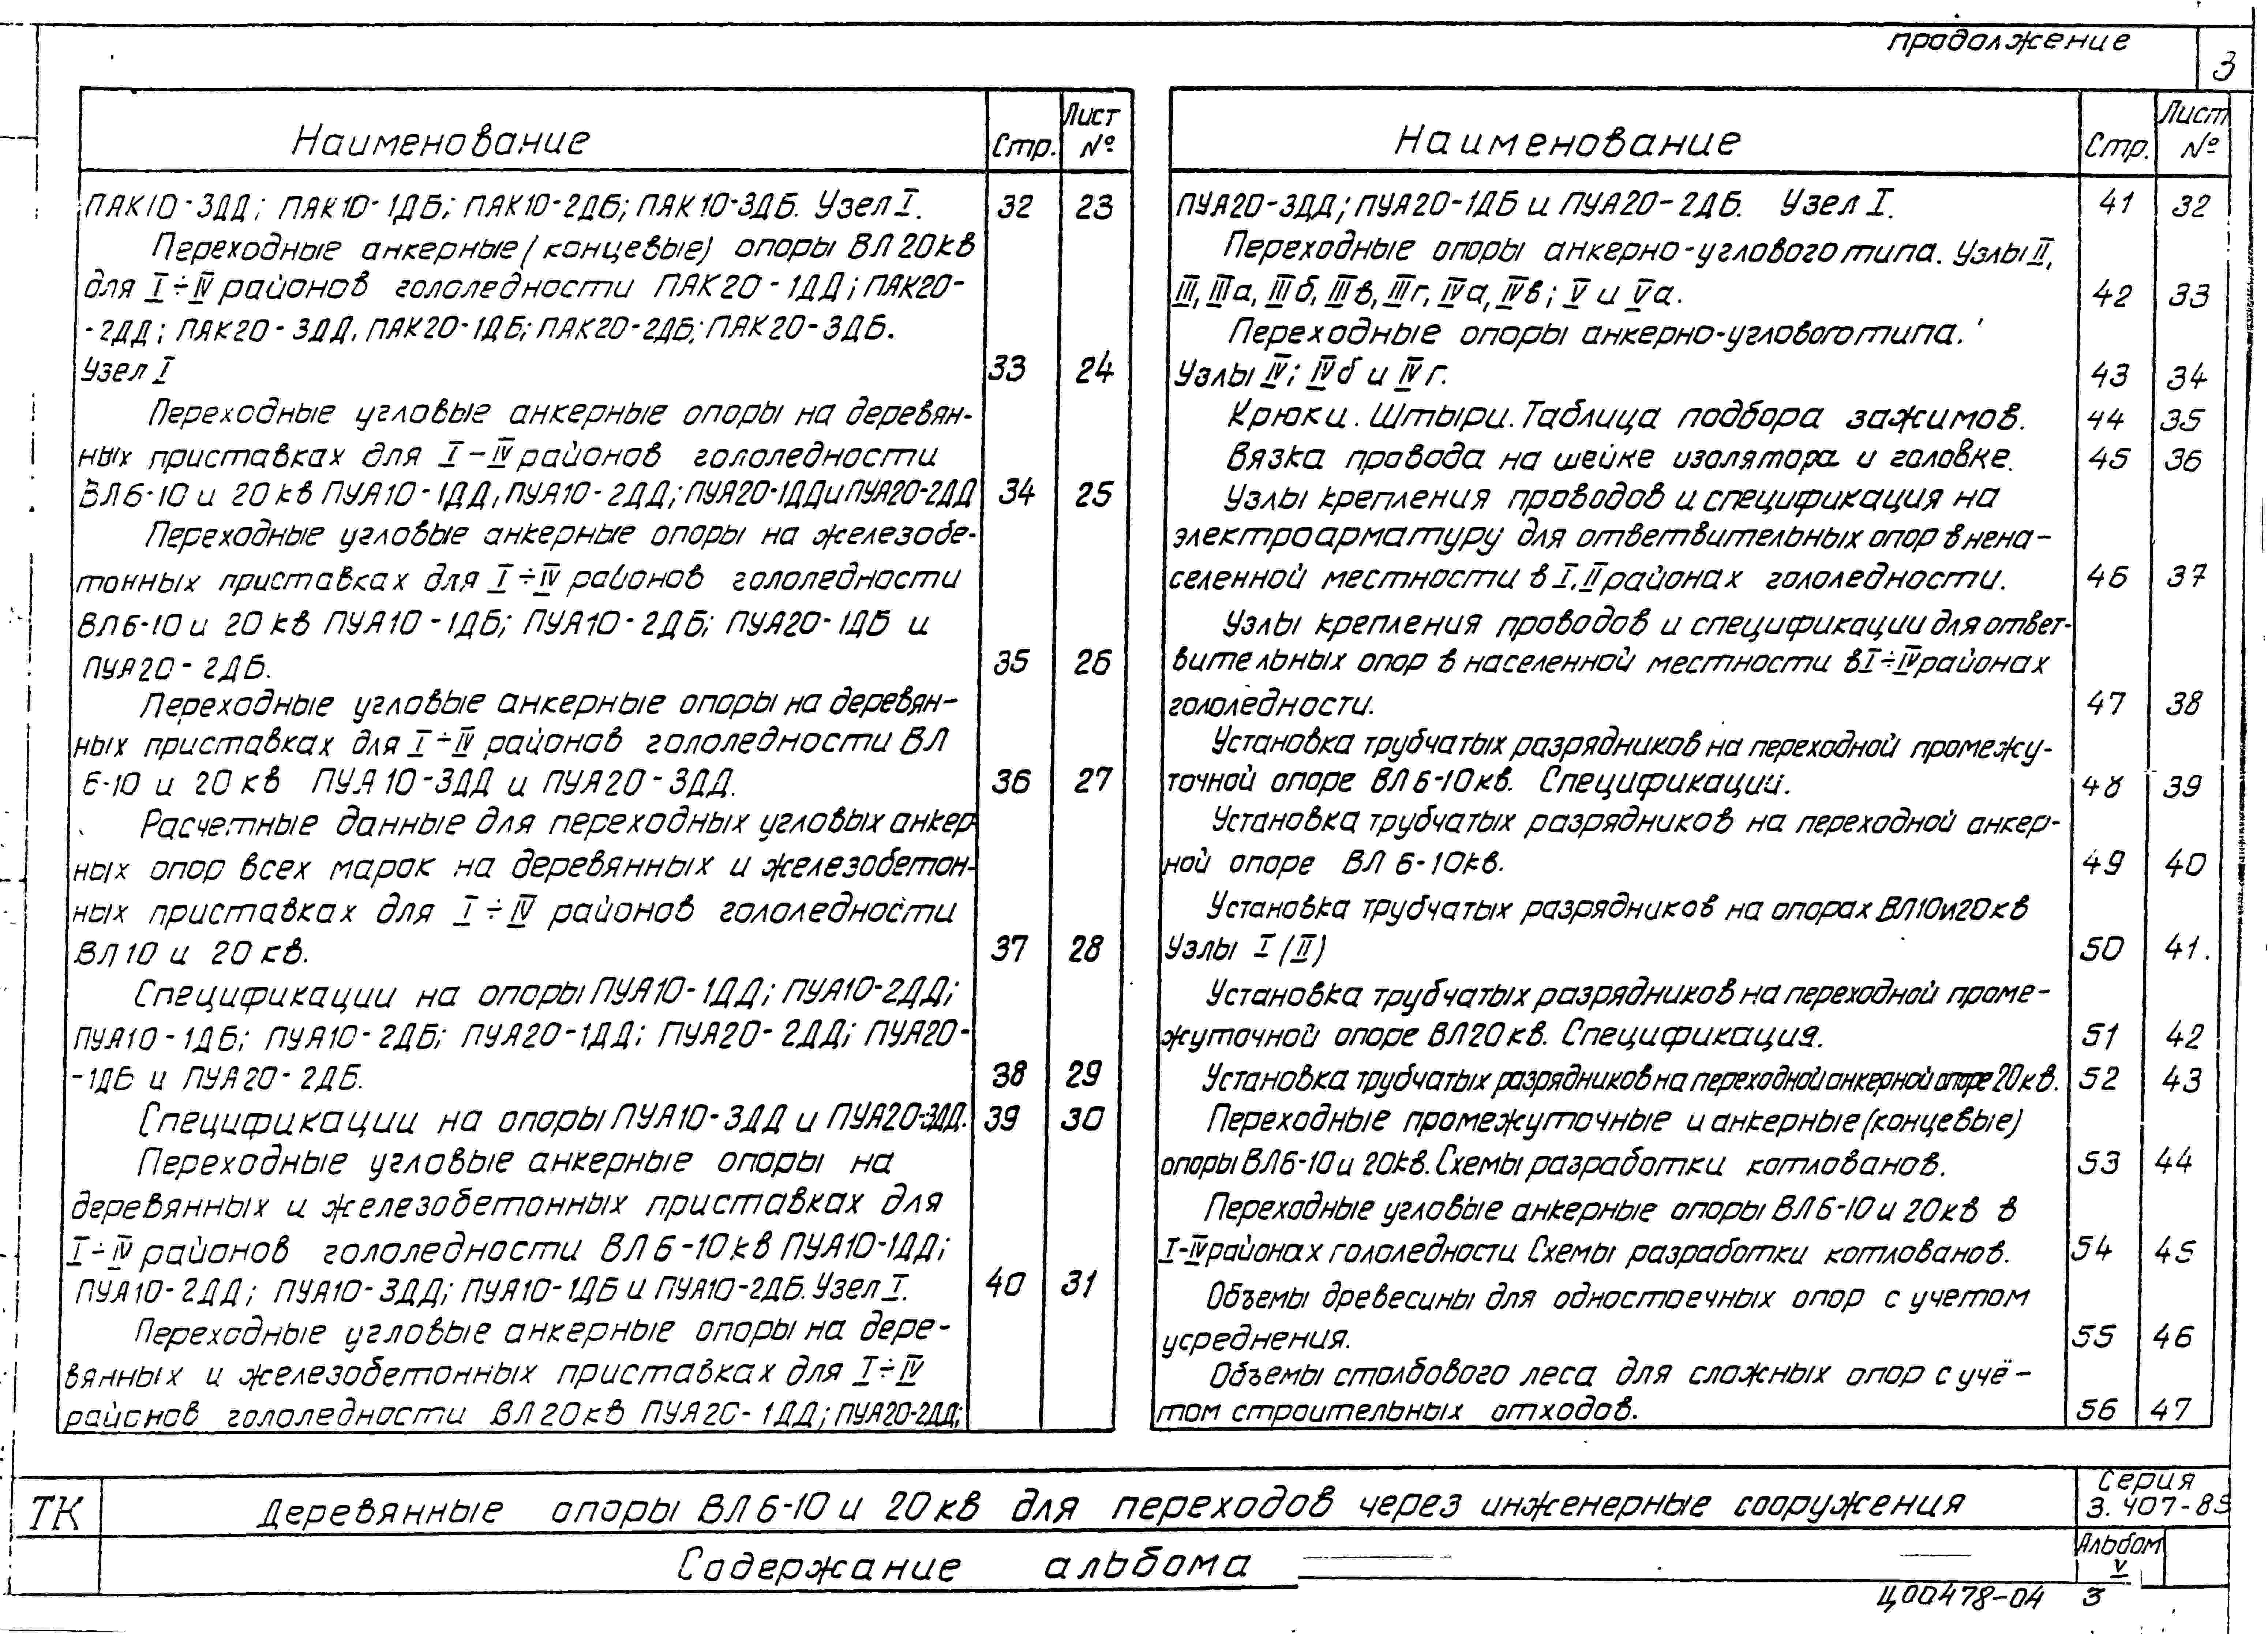 продолжение
3
Наименование Стр. Лист №
ПАК10-3ДД; ПАК10-1ДБ; ПАК10-2ДБ; ПАК10-3ДБ. Узел I. 32 23
Переходные анкерные (концевые) опоры ВЛ 20кв
для I÷IV районов гололедности ПАК20-1ДД; ПАК20-
-2ДД; ПАК20-3ДД, ПАК20-1ДБ; ПАК20-2ДБ; ПАК20-3ДБ.
Узел I 33 24
Переходные угловые анкерные опоры на деревян-
ных приставках для I-IV районов гололедности
ВЛ6-10 и 20кв ПУА10-1ДД, ПУА10-2ДД; ПУА20-1ДД и ПУА20-2ДД 34 25
Переходные угловые анкерные опоры на железобе-
тонных приставках для I÷IV районов гололедности
ВЛ6-10 и 20кв ПУА10-1ДБ; ПУА10-2ДБ; ПУА20-1ДБ и
ПУА20-2ДБ. 35 26
Переходные угловые анкерные опоры на деревян-
ных приставках для I÷IV районов гололедности ВЛ
6-10 и 20кв ПУА10-3ДД и ПУА20-3ДД. 36 27
Расчетные данные для переходных угловых анкер-
ных опор всех марок на деревянных и железобетон-
ных приставках для I÷IV районов гололедности
ВЛ10 и 20кв. 37 28
Спецификации на опоры ПУА10-1ДД; ПУА10-2ДД;
ПУА10-1ДБ; ПУА10-2ДБ; ПУА20-1ДД; ПУА20-2ДД; ПУА20-
-1ДБ и ПУА20-2ДБ. 38 29
Спецификации на опоры ПУА10-3ДД и ПУА20-3ДД. 39 30
Переходные угловые анкерные опоры на
деревянных и железобетонных приставках для
I÷IV районов гололедности ВЛ6-10кв ПУА10-1ДД;
ПУА10-2ДД; ПУА10-3ДД; ПУА10-1ДБ и ПУА10-2ДБ. Узел I. 40 31
Переходные угловые анкерные опоры на дере-
вянных и железобетонных приставках для I÷IV
районов гололедности ВЛ20кв ПУА20-1ДД; ПУА20-2ДД;
Наименование Стр. Лист №
ПУА20-3ДД; ПУА20-1ДБ и ПУА20-2ДБ. Узел I. 41 32
Переходные опоры анкерно-углового типа. Узлы II,
III, IIIа, IIIб, IIIв, IIIг, IVа, IVв; V и Vа. 42 33
Переходные опоры анкерно-углового типа.
Узлы IV; IVб и IVг. 43 34
Крюки. Штыри. Таблица подбора зажимов. 44 35
Вязка провода на шейке изолятора и головке. 45 36
Узлы крепления проводов и спецификация на
электроарматуру для ответвительных опор в нена-
селенной местности в I,II районах гололедности. 46 37
Узлы крепления проводов и спецификации для ответ-
вительных опор в населенной местности в I÷IV районах
гололедности. 47 38
Установка трубчатых разрядников на переходной промежу-
точной опоре ВЛ6-10кв. Спецификации. 48 39
Установка трубчатых разрядников на переходной анкер-
ной опоре ВЛ 6-10кв. 49 40
Установка трубчатых разрядников на опорах ВЛ10и20кв
Узлы I (II) 50 41.
Установка трубчатых разрядников на переходной проме-
жуточной опоре ВЛ20кв. Спецификация. 51 42
Установка трубчатых разрядников на переходной анкерной опоре 20кв. 52 43
Переходные промежуточные и анкерные (концевые)
опоры ВЛ6-10 и 20кв. Схемы разработки котлованов. 53 44
Переходные угловые анкерные опоры ВЛ6-10 и 20кв в
I-IV районах гололедности Схемы разработки котлованов. 54 45
Объемы древесины для одностоечных опор с учетом
усреднения. 55 46
Объемы столбового леса для сложных опор с учё-
том строительных отходов. 56 47
ТК Деревянные опоры ВЛ6-10 и 20кв для переходов через инженерные сооружения Серия
3.407-85
Содержание альбома Альбом
V
Ц00478-04 3